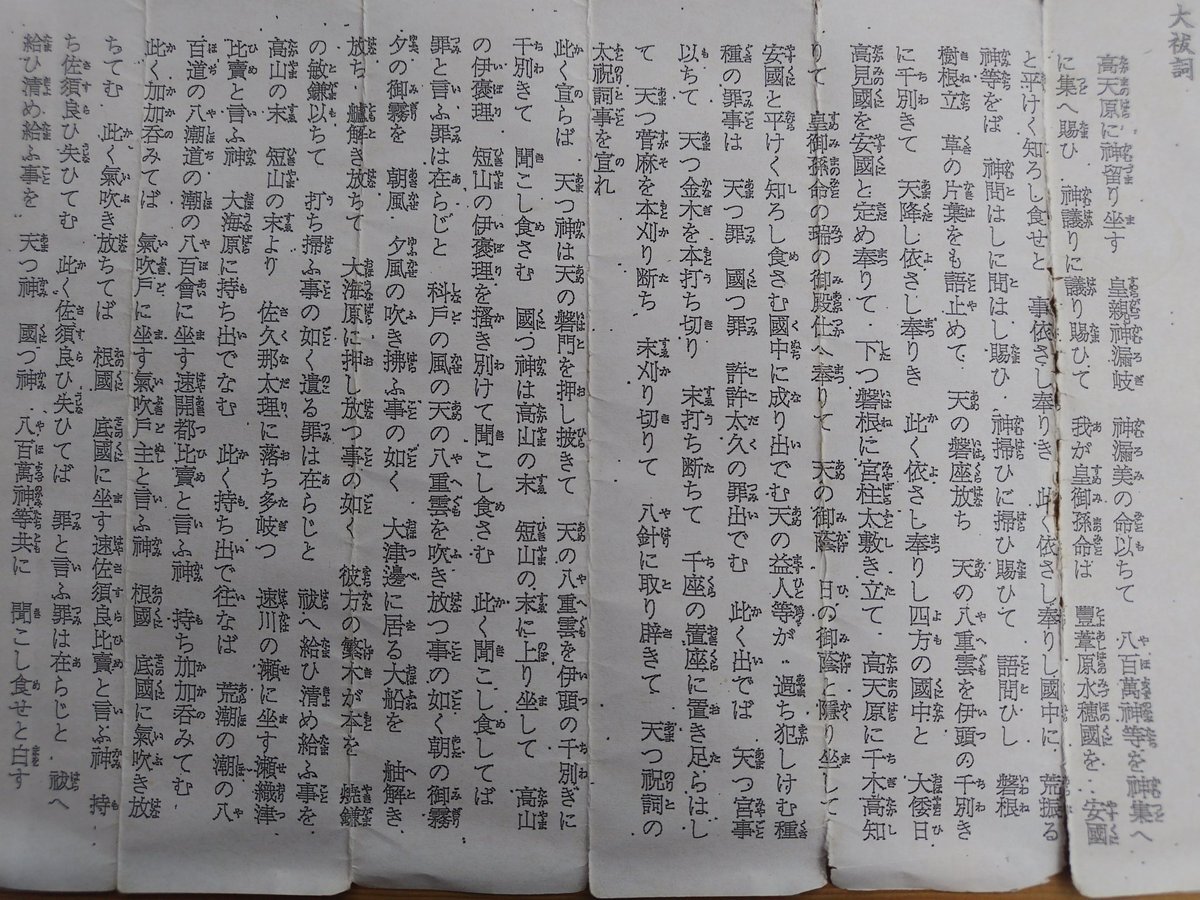 大祓詞
高天原に神留り坐す 皇親神漏岐 神漏美の命以ちて 八百萬神等を神集へ
に集へ賜ひ 神議りに議り賜ひて 我が皇御孫命は 豐葦原水穗國を 安國
と平けく知ろし食せと 事依さし奉りき 此く依さし奉りし國中に 荒振る
神等をば 神問はしに問はし賜ひ 神掃ひに掃ひ賜ひて 語問ひし 磐根
樹根立 草の片葉をも語止めて 天の磐座放ち 天の八重雲を伊頭の千別き
に千別きて 天降し依さし奉りき 此く依さし奉りし四方の國中と 大倭日
高見國を安國と定め奉りて 下つ磐根に宮柱太敷き立て 高天原に千木高知
りて 皇御孫命の瑞の御殿仕へ奉りて 天の御蔭 日の御蔭と隱り坐して
安國と平けく知ろし食さむ國中に成り出でむ天の益人等が 過ち犯しけむ種
種の罪事は 天つ罪 國つ罪 許許太久の罪出でむ 此く出でば 天つ宮事
以ちて 天つ金木を本打ち切り 末打ち斷ちて 千座の置座に置き足らはし
て 天つ菅麻を本刈り斷ち 末刈り切りて 八針に取り辟きて 天つ祝詞の
太祝詞事を宣れ
此く宣らば 天つ神は天の磐門を押し披きて 天の八重雲を伊頭の千別きに
千別きて 聞こし食さむ 國つ神は高山の末 短山の末に上り坐して 高山
の伊褒理 短山の伊褒理を搔き別けて聞こし食さむ 此く聞こし食してば
罪と言ふ罪は在らじと 科戸の風の天の八重雲を吹き放つ事の如く 朝の御霧
夕の御霧を 朝風 夕風の吹き拂ふ事の如く 大津邊に居る大船を 舳解き
放ち 艫解き放ちて 大海原に押し放つ事の如く 彼方の繁木が本を 燒鎌
の敏鎌以ちて 打ち掃ふ事の如く 遺る罪は在らじと 祓へ給ひ清め給ふ事を
高山の末 短山の末より 佐久那太理に落ち多岐つ 速川の瀨に坐す瀨織津
比賣と言ふ神 大海原に持ち出でなむ 此く持ち出で往なば 荒潮の潮の八
百道の八潮道の潮の八百會に坐す速開都比賣と言ふ神 持ち加加呑みてむ
此く加加呑みてば 氣吹戸に坐す氣吹戸主と言ふ神 根國 底國に氣吹き放
ちてむ 此く氣吹き放ちてば 根國 底國に坐す速佐須良比賣と言ふ神 持
ち佐須良ひ失ひてむ 此く佐須良ひ失ひてば 罪と言ふ罪は在らじと 祓へ
給ひ清め給ふ事を 天つ神 國つ神 八百萬神等共に 聞こし食せと白す